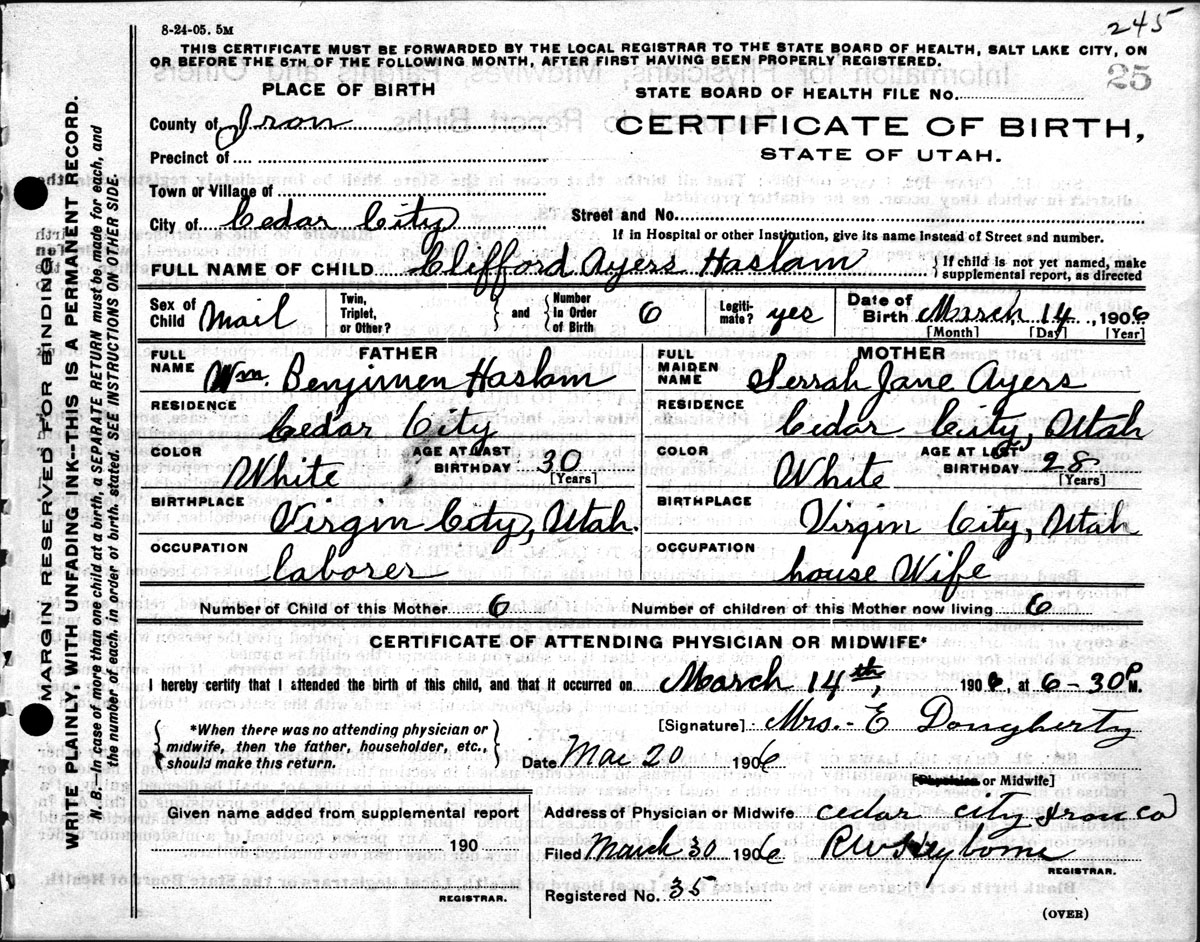 245
8-24-05. 5M
THIS CERTIFICATE MUST BE FORWARDED BY THE LOCAL REGISTRAR TO THE STATE BOARD OF HEALTH, SALT LAKE CITY, ON
OR BEFORE THE 5TH OF THE FOLLOWING MONTH, AFTER FIRST HAVING BEEN PROPERLY REGISTERED.
25
PLACE OF BIRTH
STATE BOARD OF HEALTH FILE NO.
County of Iron
CERTIFICATE OF BIRTH,
Precinct of
STATE OF UTAH.
Town or Village of
City of Cedar City Street and No.
If in Hospital or other Institution, give its name instead of Street and number.
FULL NAME OF CHILD Clifford Ayers Haslam { If child is not yet named, make
supplemental report, as directed
Sex of Child Mail Twin, Triplet, or Other? } and { Number In Order of Birth 6 Legiti- mate? yes Date of Birth March 14, 1906
[Month] [Day] [Year]
FATHER MOTHER
FULL NAME Wm. Benjimen Haslam FULL MAIDEN NAME Serrah Jane Ayers
RESIDENCE Cedar City RESIDENCE Cedar City, Utah
COLOR White AGE AT LAST BIRTHDAY 30 [Years] COLOR White AGE AT LAST BIRTHDAY 28 [Years]
BIRTHPLACE Virgin City, Utah. BIRTHPLACE Virgin City, Utah
OCCUPATION laborer OCCUPATION house Wife
Number of Child of this Mother 6 Number of children of this Mother now living 6
CERTIFICATE OF ATTENDING PHYSICIAN OR MIDWIFE*
I hereby certify that I attended the birth of this child, and that it occurred on March 14th, 1906 at 6-30 P M.
{ *When there was no attending physician or
midwife, then the father, householder, etc.,
should make this return. }
[Signature] Mrs.- E Dougherty
Date Mar 20 1906
[Physician or Midwife]
Given name added from supplemental report
190
REGISTRAR.
Address of Physician or Midwife cedar city Iron co
Filed March 30 1906
REGISTRAR.
Registered No. 35
(OVER)
MARGIN RESERVED FOR BINDING
WRITE PLAINLY, WITH UNFADING INK--THIS IS A PERMANENT RECORD.
N. B.--In case of more than one child at a birth, a SEPARATE RETURN must be made for each, and
the number of each, in order of birth, stated. SEE INSTRUCTIONS ON OTHER SIDE.